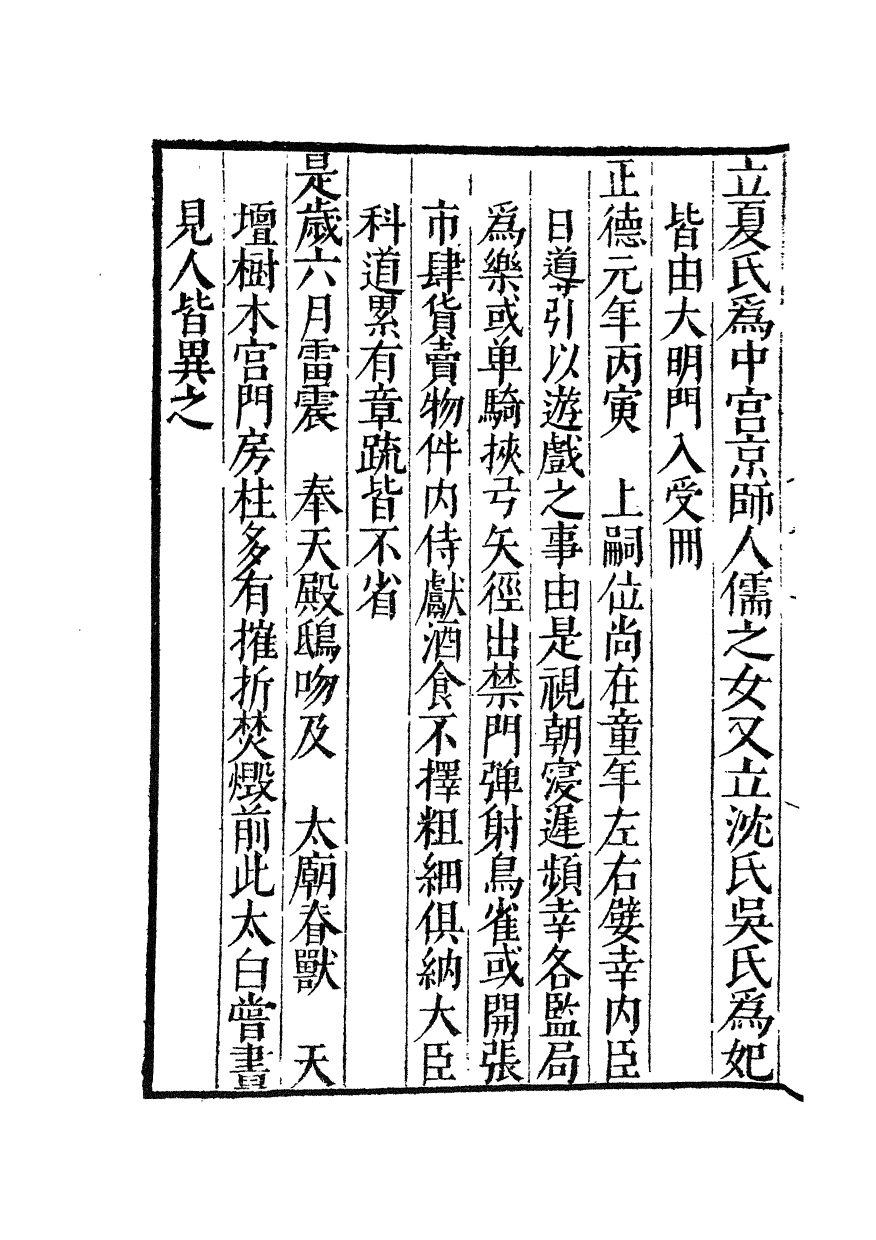 立夏氏爲中宫京師人儒之女又立沈氏吳氏爲妃
皆由大明門入受冊
正德元年丙寅　上嗣位尚在童年左右嬖幸内臣
日導引以遊戲之事由是視朝寖遲頻幸各監局
爲樂或单騎挾弓矢徑出禁門弹射鳥雀或開張
市肆貨賣物件内侍獻酒食不擇粗細俱納大臣
科道累有章疏皆不省
是歲六月雷震　奉天殿鴟吻及　太廟脊獸　天
壇樹木宫門房柱多有摧折焚燬前此太白嘗晝
見人皆異之